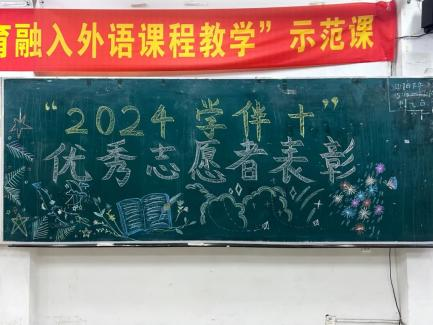 育融入外语课程教学”示范课
“2024学伴+”
优秀志愿者表彰